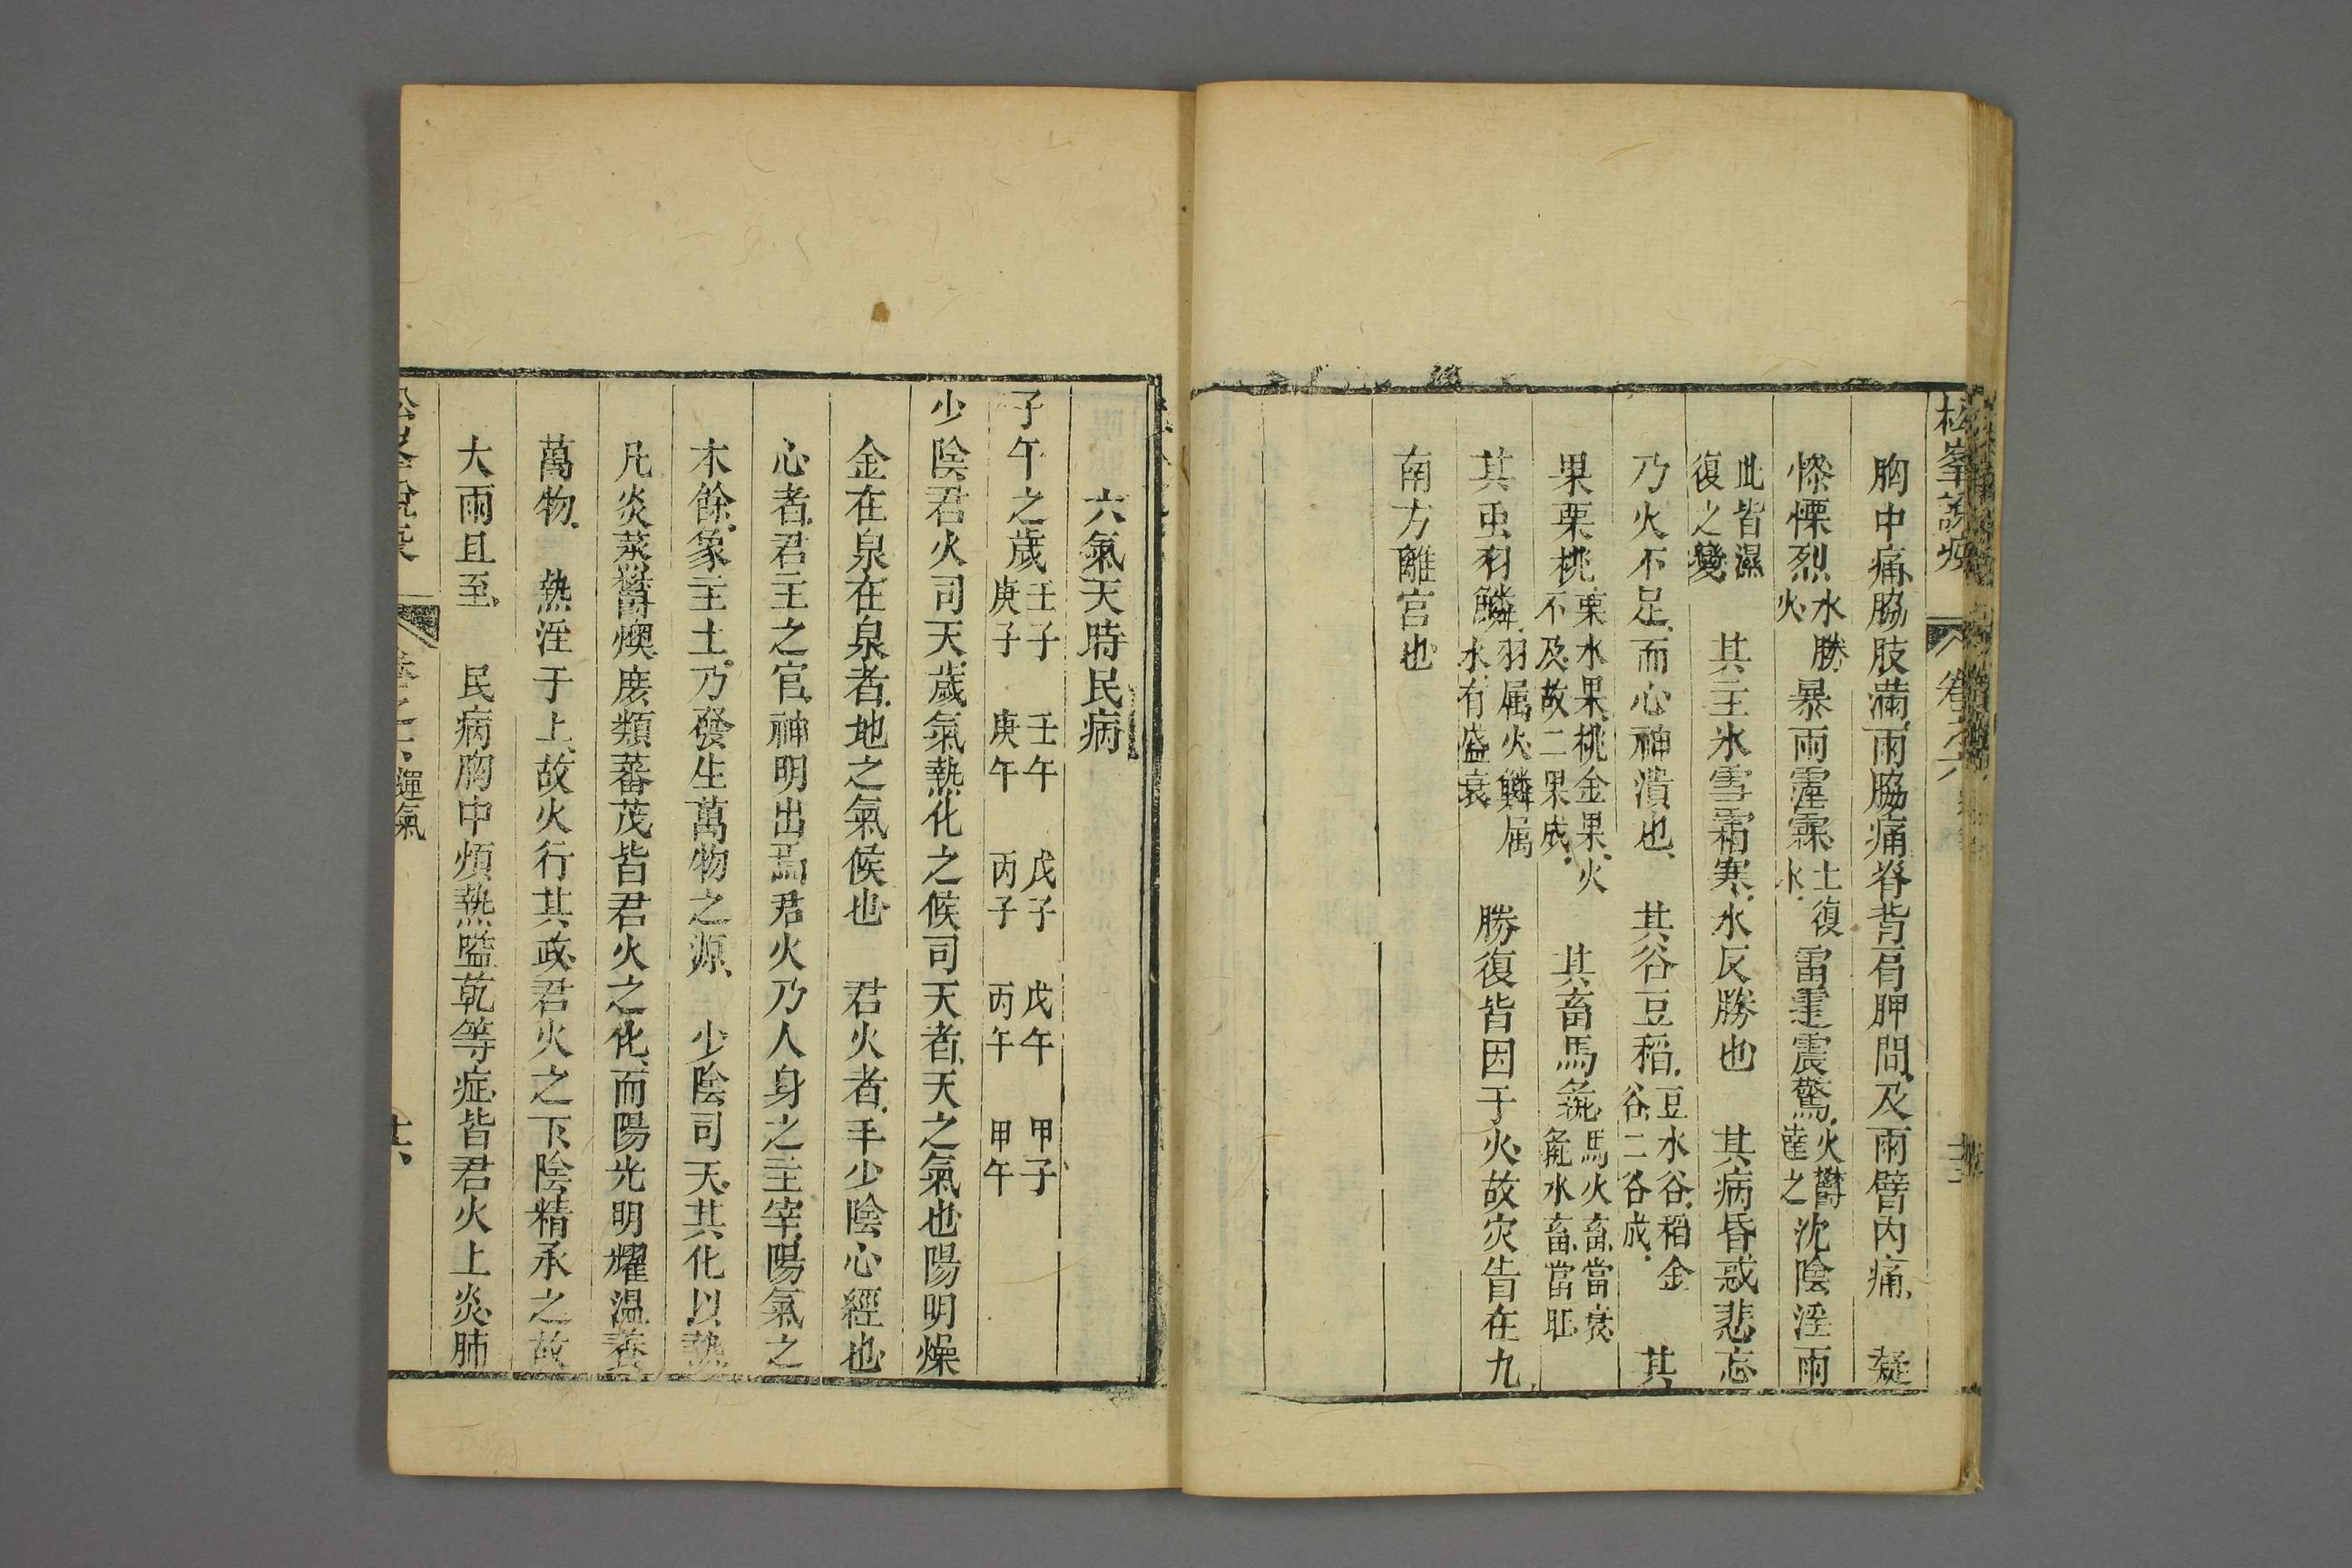 松峯說疫 卷之六
胸中痛脇肢滿雨脇痛脊背肩胛問及雨臂内痛 凝
慘慄烈水勝火 暴雨霪霖土復水 雷霆震驚火鬱達之沈陰淫雨
此皆濕復之變 其主氷雪霜寒水反勝也 其病昏惑悲忘
乃火不足而心神潰也 其谷豆稻豆水谷稻金谷二谷成 其
果栗桃栗水果桃金果火不及故二果成 其畜馬彘馬火畜當衰彘水畜當旺
其虫羽鱗羽属火鱗属水有盛衰 勝復皆因于火故灾眚在九
南方離宫也
六氣天時民病
子午之歲壬子 壬午 戊子 戊午 甲子
庚子 庚午 丙子 丙午 甲午
少陰君火司天歲氣熱化之候司天者天之氣也陽明燥
金在泉在泉者地之氣候也 君火者手少陰心經也
心者君主之官神明出焉君火乃人身之主宰陽氣之
木餘象主土乃發生萬物之源 少陰司天其化以熱
凡炎蒸鬱燠庶類蕃茂皆君火之化而陽光明耀温養
萬物 熱淫于上故火行其政君火之下陰精承之故
大雨且至 民病胸中煩熱嗌乾等症皆君火上炎肺
運氣